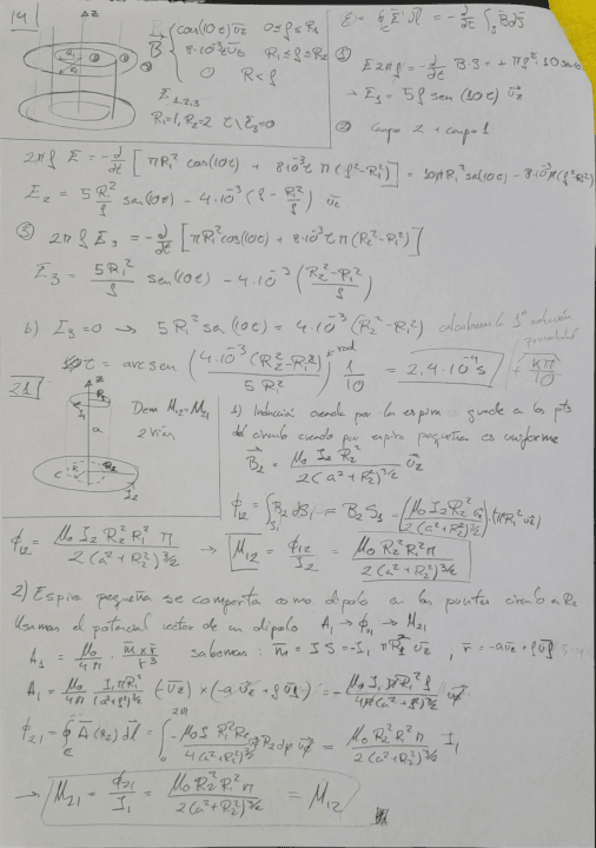 14)
z
B
cos(10t) uz 0≤ρ≤R1
8·10⁻³t uz R1≤ρ≤R2
0 R<ρ
E1,2,3
R1=1, R2=2 t\E3=0
ε = ∮c E dl = -d/dt ∫s B ds
① E2πρ = -d/dt B·S = +πρ²·10 sen
→ E1 = 5ρ sen(10t) uz
② campo 2 + campo 1
2πρ E = -d/dt [πR1² cos(10t) + 8·10⁻³t π(ρ²-R1²)] = 10πR1² sen(10t) - 8·10⁻³π(ρ²-R1²)
E2 = 5 R1²/ρ sen(10t) - 4·10⁻³ (ρ - R1²/ρ) uz
③ 2πρ E3 = -d/dt [πR1² cos(10t) + 8·10⁻³t π(R2²-R1²)]
E3 = 5R1²/ρ sen(10t) - 4·10⁻³ ((R2²-R1²)/ρ)
b) E3=0 → 5R1² sen(10t) = 4·10⁻³ (R2²-R1²) calculamos la 1ª solución
t = arcsen (4·10⁻³(R2²-R1²)/5R1²) rad 1/10 = 2,4·10⁻⁴ s + Kπ/10
21)
z
R1
I1
a
R2
c
I2
Dem M12=M21
2 vías
1) Inducción creada por la espira grande a los pts
del círculo creado por espira pequeña es uniforme
B2 = μ0 I2 R2² / 2(a²+R2²)^3/2 uz
ϕ12 = ∫S1 B2 dS1 = B2 S1 = (μ0 I2 R2² uz / 2(a²+R2²)^3/2)·(πR1² uz)
ϕ12 = μ0 I2 R2² R1² π / 2(a²+R2²)^3/2 → M12 = ϕ12/I2 = μ0 R2² R1² π / 2(a²+R2²)^3/2
2) Espira pequeña se comporta como dipolo en los puntos círculo R2
Usamos el potencial vector de un dipolo A1 → ϕ21 → M21
A1 = μ0/4π · m×r/r³ sabemos: m = I S = -I1 πR1² uz, r = -a uz + ρ uρ
A1 = μ0/4π I1πR1²/(a²+ρ²)^3/2 (-uz)×(-a uz + ρ uρ) = -μ0 I1 πR1² ρ / 4π(a²+ρ²)^3/2 uφ
ϕ21 = ∮c A(R2) dl = ∫0 2π -μ0 I R1² R2 / 4(a²+R2²)^3/2 R2 dφ uφ = μ0 R2² R1² π / 2(a²+R2²)^3/2 I1
→ M21 = ϕ21/I1 = μ0 R2² R1² π / 2(a²+R2²)^3/2 = M12